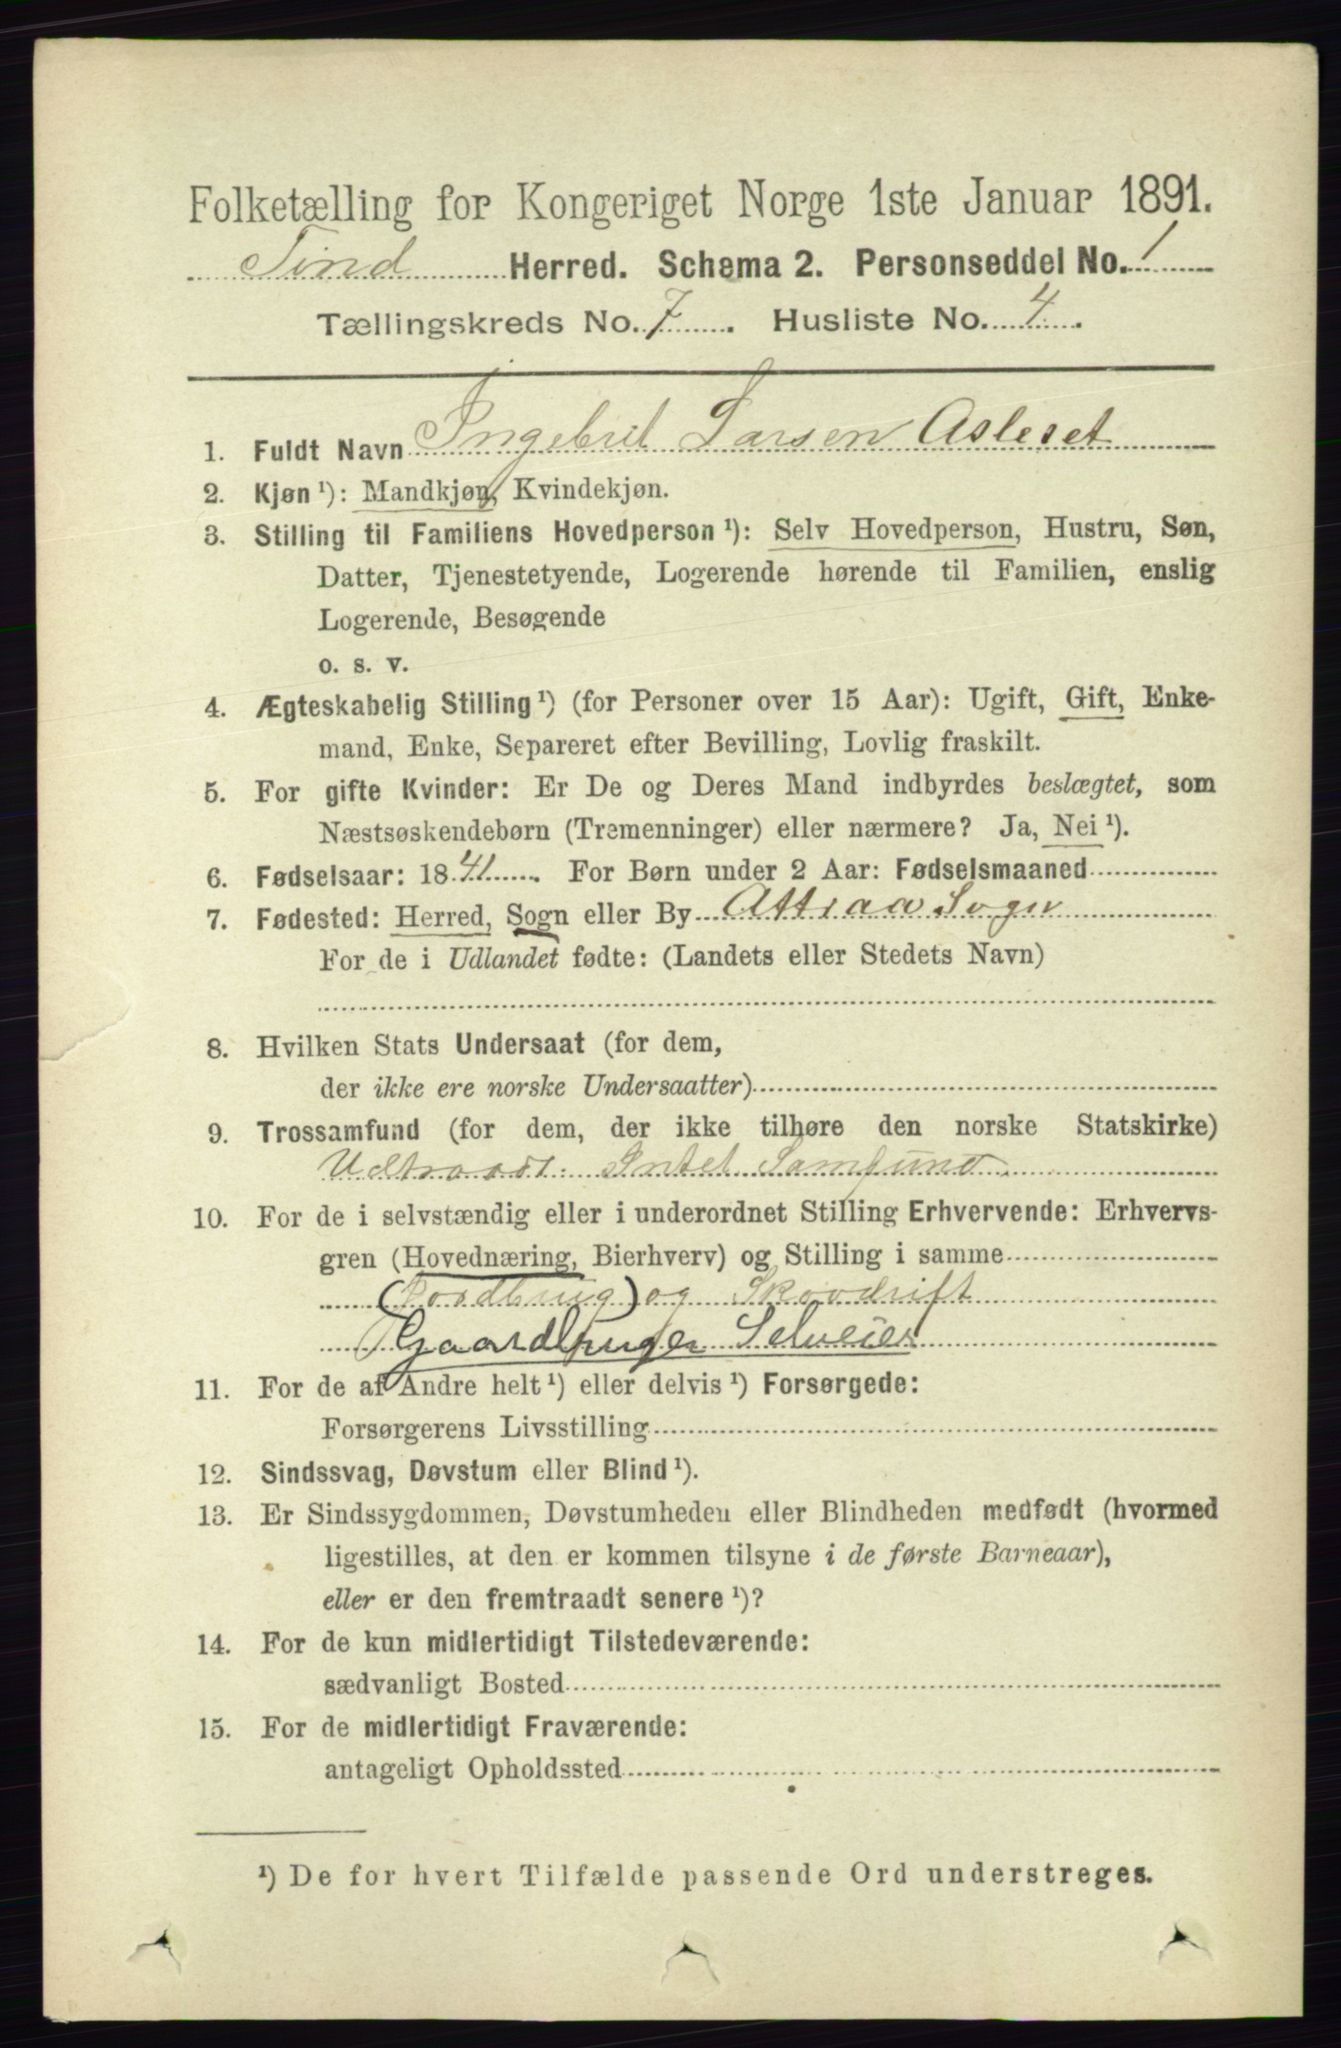 Folketælling for Kongeriget Norge 1ste Januar 1891.
Tind Herred. Schema 2. Personseddel No. 1
Tællingskreds No. 7. Husliste No. 4.
1. Fuldt Navn Ingebret Larsen Asleset
2. Kjøn ¹): Mandkjøn, Kvindekjøn.
3. Stilling til Familiens Hovedperson ¹): Selv Hovedperson, Hustru, Søn,
Datter, Tjenestetyende, Logerende hørende til Familien, enslig
Logerende, Besøgende
o. s. v.
4. Ægteskabelig Stilling ¹) (for Personer over 15 Aar): Ugift, Gift, Enke-
mand, Enke, Separeret efter Bevilling, Lovlig fraskilt.
5. For gifte Kvinder: Er De og Deres Mand indbyrdes beslægtet, som
Næstsøskendebørn (Tremenninger) eller nærmere? Ja, Nei ¹).
6. Fødselsaar: 1841. For Børn under 2 Aar: Fødselsmaaned
7. Fødested: Herred, Sogn eller By Attraa Sogn
For de i Udlandet fødte: (Landets eller Stedets Navn)
8. Hvilken Stats Undersaat (for dem,
der ikke ere norske Undersaatter)
9. Trossamfund (for dem, der ikke tilhøre den norske Statskirke)
Udtraadt. Intet Samfund
10. For de i selvstændig eller i underordnet Stilling Erhvervende: Erhvervs-
gren (Hovednæring, Bierhverv) og Stilling i samme
(Jordbrug) og Skovdrift
Gaardbruger Selveier
11. For de af Andre helt ¹) eller delvis ¹) Forsørgede:
Forsørgerens Livsstilling
12. Sindssvag, Døvstum eller Blind ¹).
13. Er Sindssygdommen, Døvstumheden eller Blindheden medfødt (hvormed
ligestilles, at den er kommen tilsyne i de første Barneaar),
eller er den fremtraadt senere ¹)?
14. For de kun midlertidigt Tilstedeværende:
sædvanligt Bosted
15. For de midlertidigt Fraværende:
antageligt Opholdssted
¹) De for hvert Tilfælde passende Ord understreges.